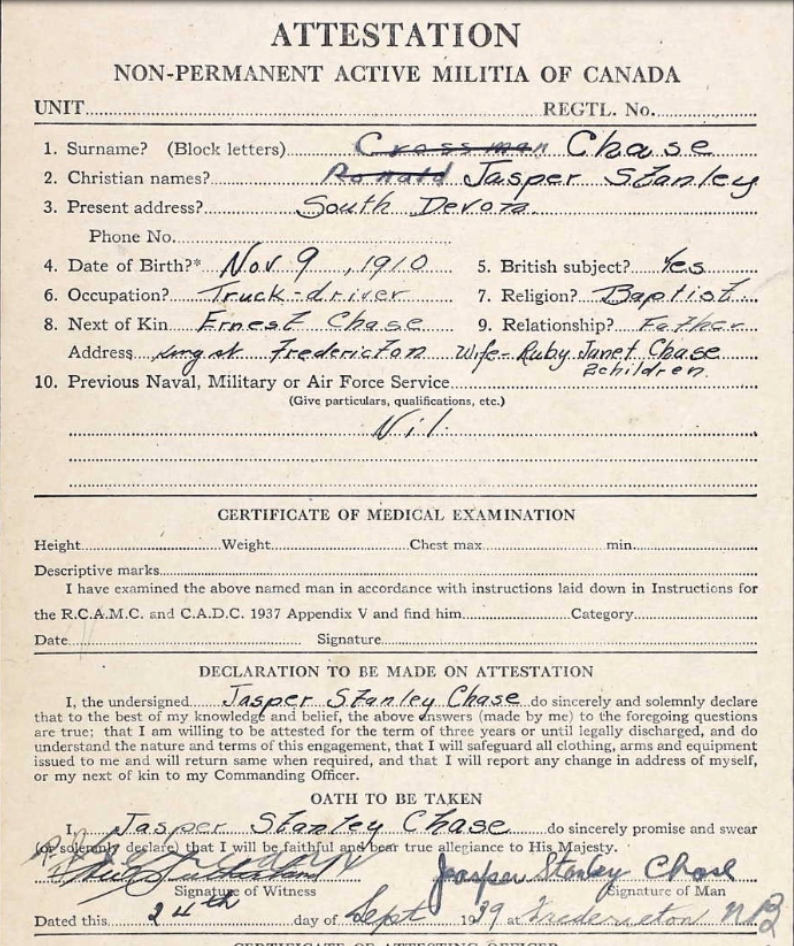 ATTESTATION
NON-PERMANENT ACTIVE MILITIA OF CANADA
UNIT REGTL. No.
1. Surname? (Block letters) Crossman Chase
2. Christian names? Ronald Jasper Stanley
3. Present address? South Devon
Phone No.
4. Date of Birth?* Nov 9, 1910 5. British subject? Yes
6. Occupation? Truck-driver 7. Religion? Baptist
8. Next of Kin Ernest Chase 9. Relationship? Father
Address King st Fredericton Wife- Ruby Janet Chase
2 children.
10. Previous Naval, Military or Air Force Service
(Give particulars, qualifications, etc.)
Nil
CERTIFICATE OF MEDICAL EXAMINATION
Height Weight Chest max min.
Descriptive marks
I have examined the above named man in accordance with instructions laid down in Instructions for
the R.C.A.M.C. and C.A.D.C. 1937 Appendix V and find him Category
Date Signature
DECLARATION TO BE MADE ON ATTESTATION
I, the undersigned Jasper Stanley Chase do sincerely and solemnly declare
that to the best of my knowledge and belief, the above answers (made by me) to the foregoing questions
are true; that I am willing to be attested for the term of three years or until legally discharged, and do
understand the nature and terms of this engagement, that I will safeguard all clothing, arms and equipment
issued to me and will return same when required, and that I will report any change in address of myself,
or my next of kin to my Commanding Officer.
OATH TO BE TAKEN
I, Jasper Stanley Chase do sincerely promise and swear
(or solemnly declare) that I will be faithful and bear true allegiance to His Majesty.
Jasper Stanley Chase
Signature of Witness Signature of Man
Dated this 24th day of Sept 1939 at Fredericton NB
CERTIFICATE OF ATTESTING OFFICER